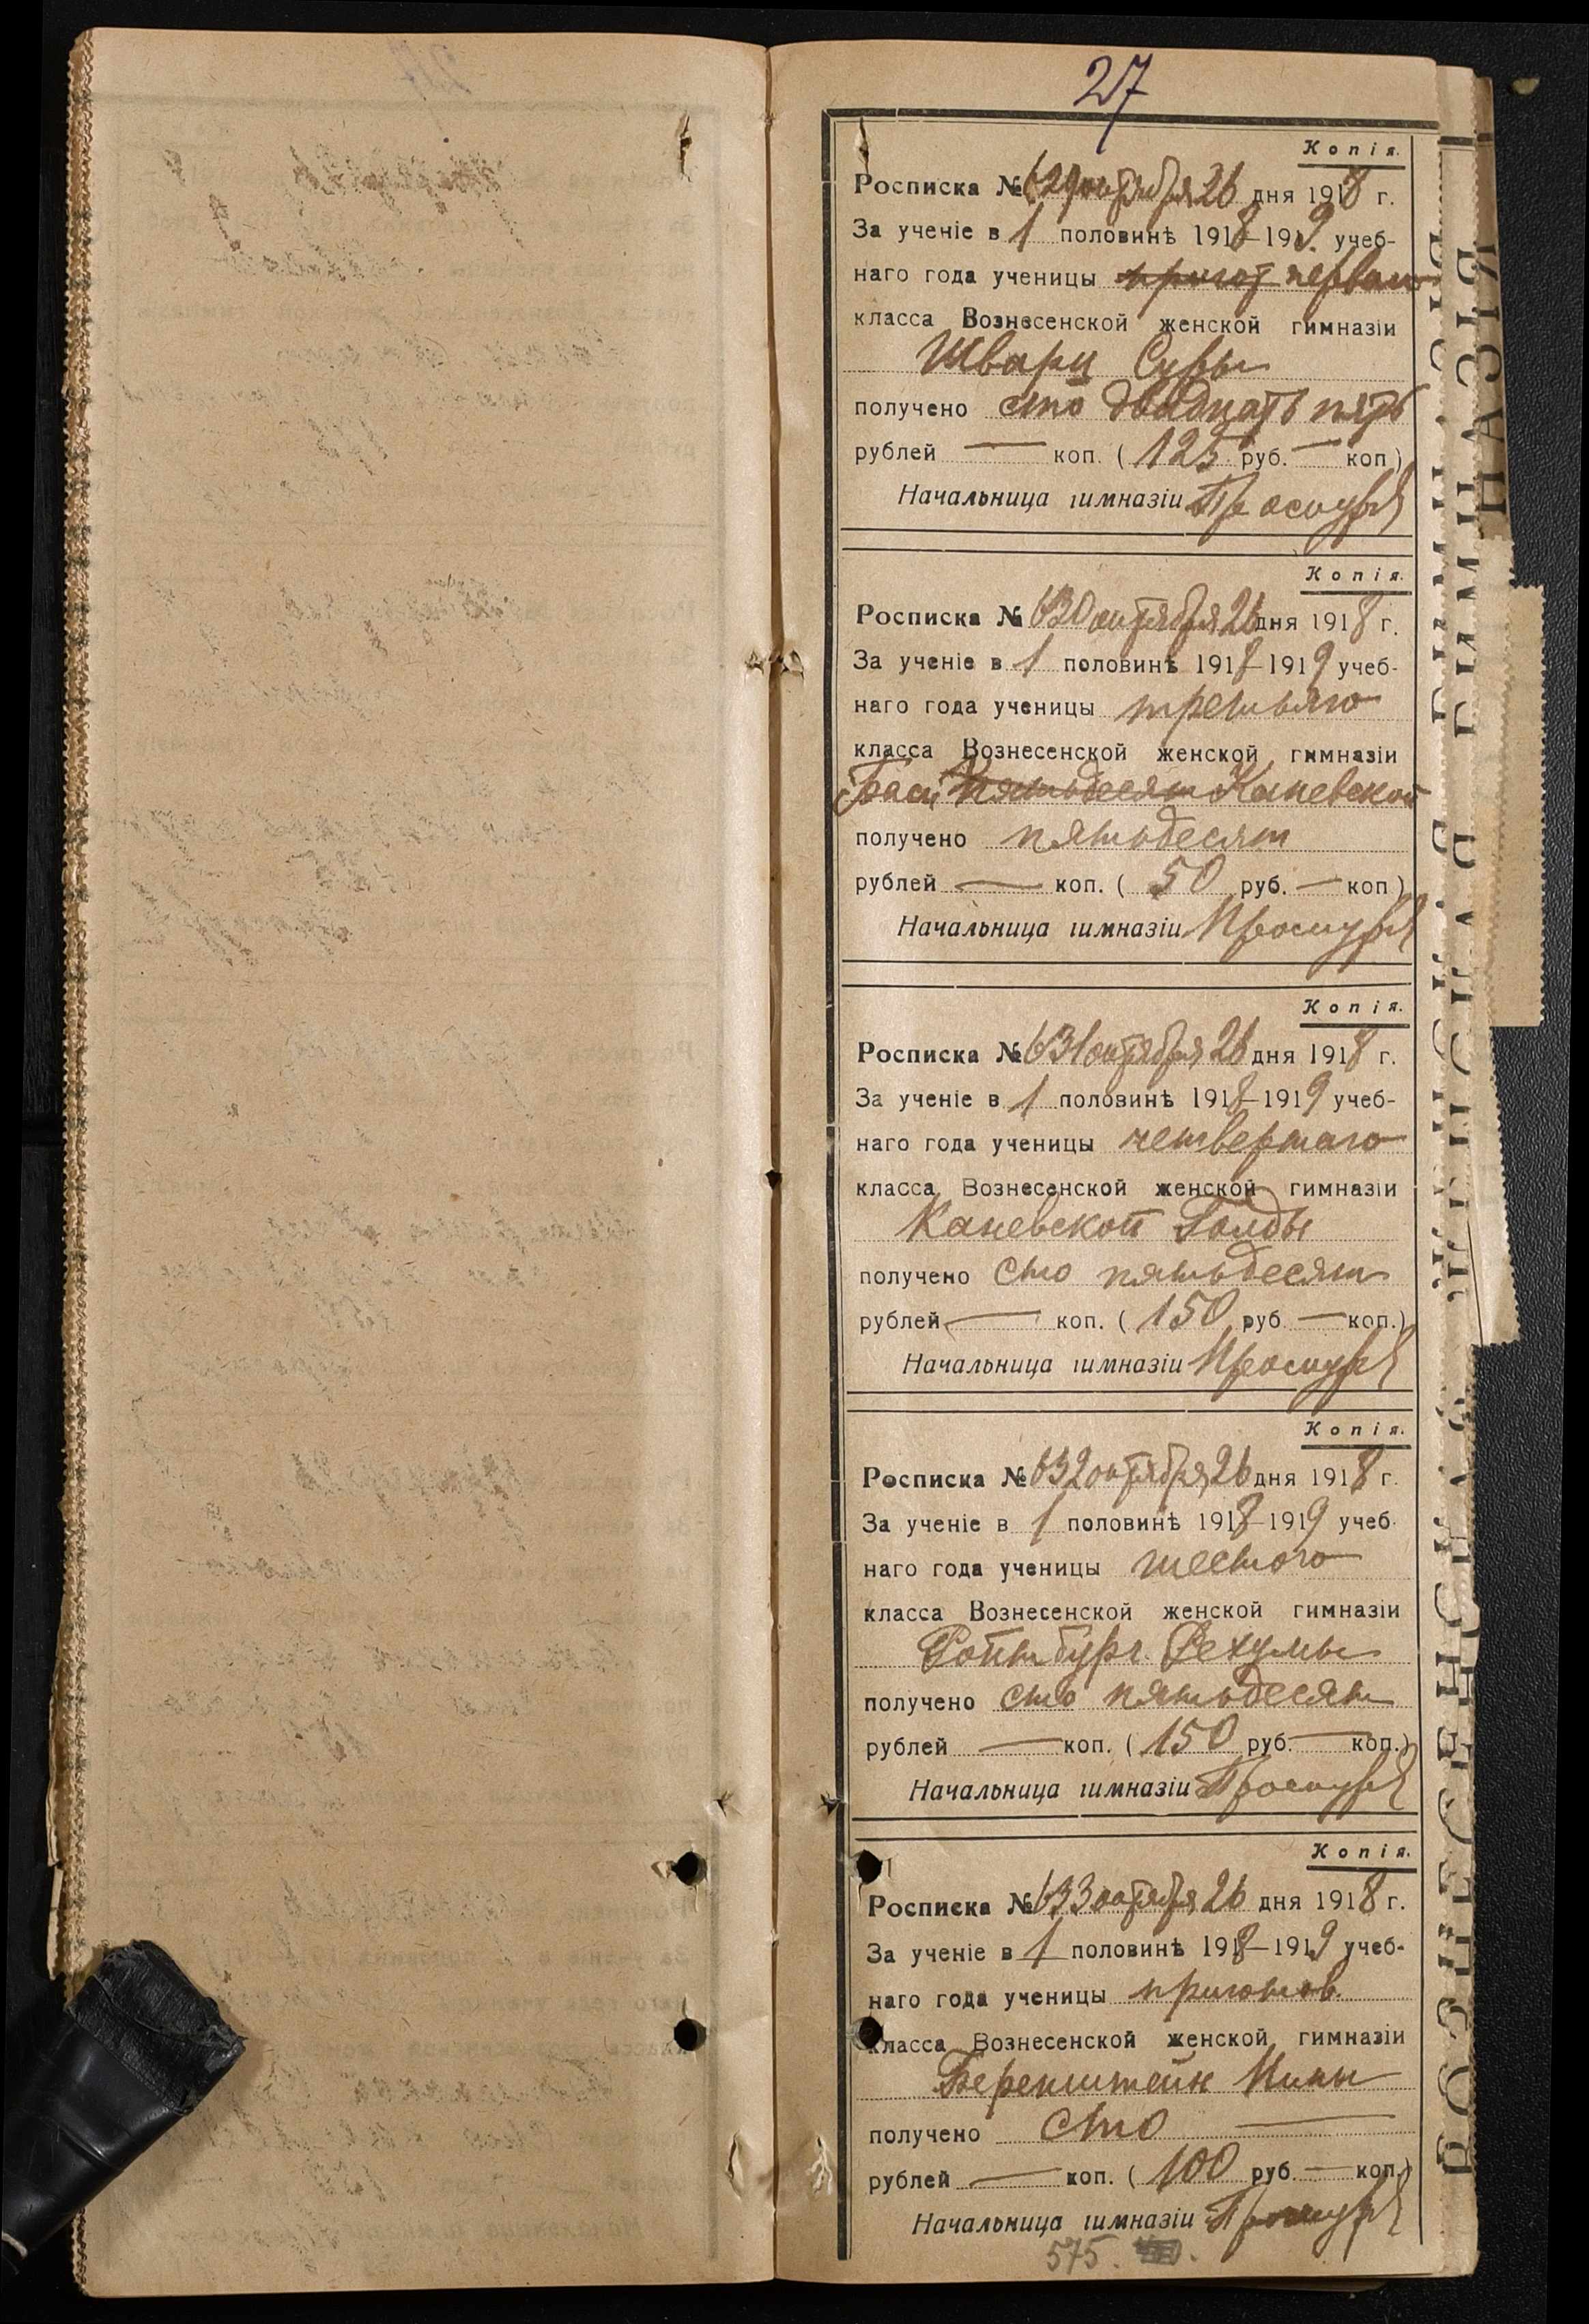 27
Копія.
Росписка № 629 октября 26 дня 1918 г.
За ученіе в 1 половинѣ 1918–1919 учеб-
наго года ученицы пригот перваго
класса Вознесенской женской гимназіи
Шварц Суры
получено сто двадцать пять
рублей — коп. ( 125 руб. — коп )
Начальница гимназіи
Копія.
Росписка № 630 октября 26 дня 1918 г.
За ученіе в 1 половинѣ 1918–1919 учеб-
наго года ученицы третьяго
класса Вознесенской женской гимназіи
Баси пятьдесят Каневской
получено пятьдесят
рублей — коп. ( 50 руб. — коп )
Начальница гимназіи
Копія.
Росписка № 631 октября 26 дня 1918 г.
За ученіе в 1 половинѣ 1918–1919 учеб-
наго года ученицы четвертаго
класса Вознесенской женской гимназіи
Каневской Голды
получено сто пятьдесят
рублей — коп. ( 150 руб — коп.)
Начальница гимназіи
Копія.
Росписка № 632 октября 26 дня 1918 г.
За ученіе в 1 половинѣ 1918–1919 учеб-
наго года ученицы шестого
класса Вознесенской женской гимназіи
Ройтбург Рехумы
получено сто пятьдесят
рублей — коп. ( 150 руб. — коп.)
Начальница гимназіи
Копія.
Росписка № 633 октября 26 дня 1918 г.
За ученіе в 1 половинѣ 1918–1919 учеб-
наго года ученицы приготов.
класса Вознесенской женской гимназіи
Беренштейн Нины
получено сто —
рублей — коп. ( 100 руб — коп.)
Начальница гимназіи
575.